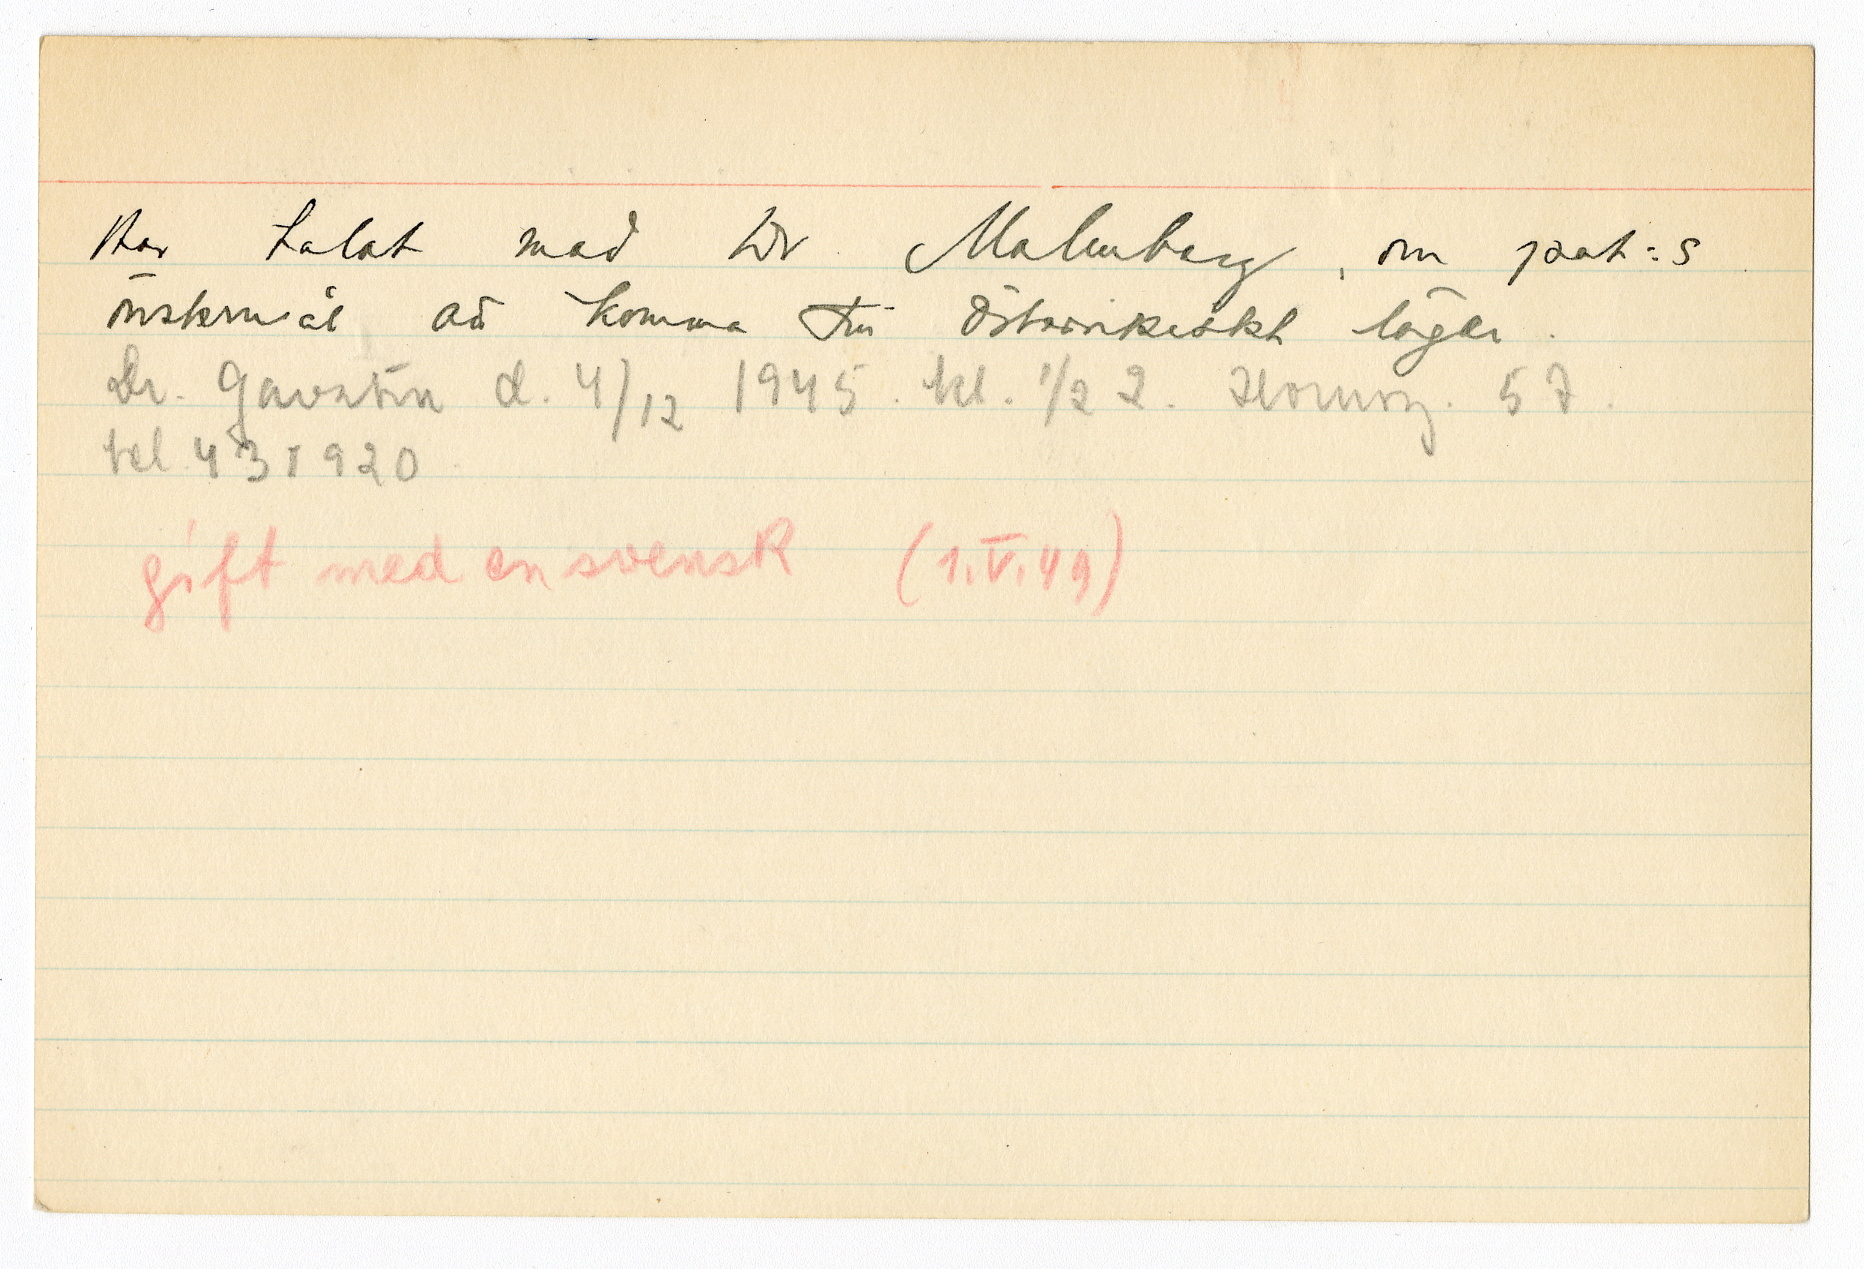 Har talat med Dr Malmberg, om pat:s
önskemål att komma till Österrikiskt läger.
Dr. Gavatin d. 4/12 1945. kl. 1/2 2. Hornsg. 57.
tel. 431920
gift med en svensk (1.V.49)